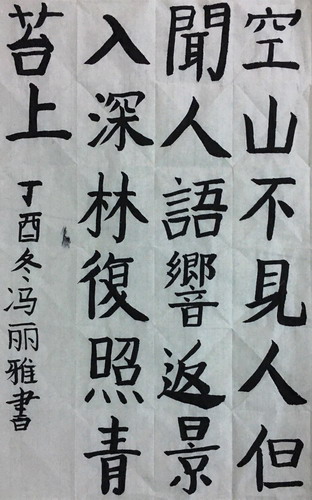 空山不見人但
聞人語響返景
入深林復照青
苔上
丁酉冬冯丽雅書